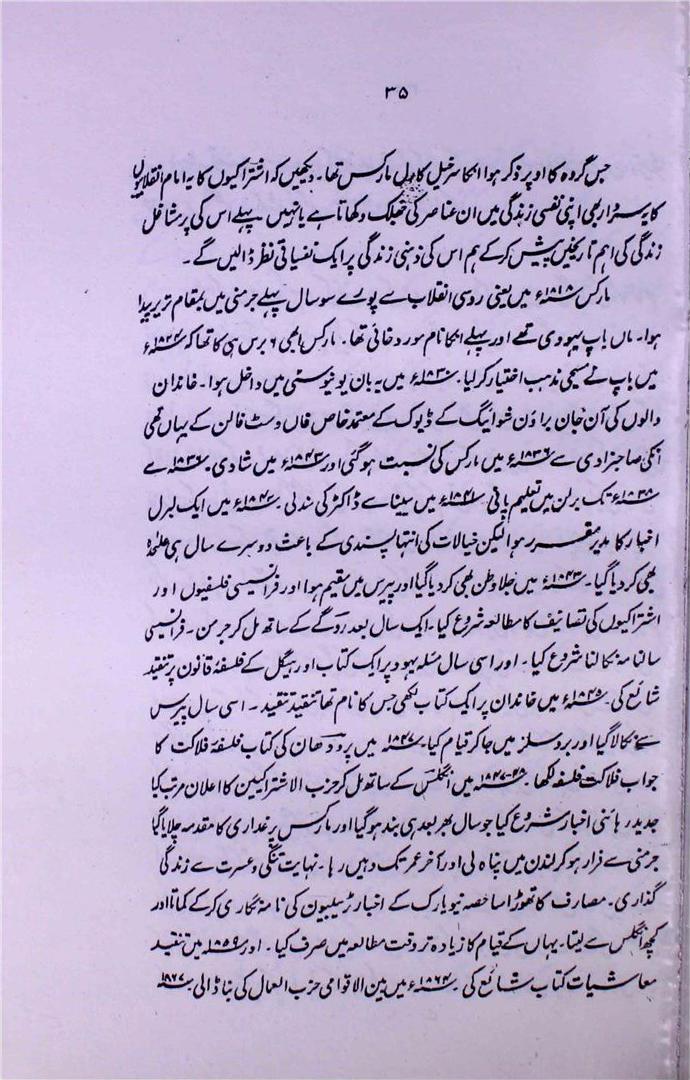 ۳۵
جس گروہ کا اوپر ذکر ہوا انکا سرخیل کارل مارکس تھا۔ دیکھیں کہ اشتراکیوں کا یہ امام انقلابیوں
کا پرستار بھی اپنی نفسی زندگی میں ان عناصر کی جھلک دکھاتا ہے یا نہیں پہلے اس کی پر مشاغل
زندگی کی اہم تاریخیں پیش کر کے ہم اس کی ذہنی زندگی پر ایک نفسیاتی نظر ڈالیں گے۔
مارکس ۱۸۱۸ء میں یعنی روسی انقلاب سے پورے سو سال پہلے جرمنی میں بمقام تریر پیدا
ہوا۔ ماں باپ یہودی تھے اور پہلے انکا نام مورد خائی تھا۔ مارکس ابھی ۶ برس ہی کا تھا کہ ۱۸۲۴ء
میں باپ نے مسیحی مذہب اختیار کر لیا۔ ۱۸۳۰ء میں یہ بان یونیوسٹی میں داخل ہوا۔ خاندان
والوں کی آن جان براؤن شوائیگ کے ڈیوک کے معتمد خاص فاں وسٹ فالن کے یہاں تھی
انکی صاحبزادی سے ۱۸۳۶ء میں مارکس کی نسبت ہو گئی اور ۱۸۴۳ء میں شادی۔ ۱۸۳۶ء سے
۱۸۳۸ء تک برلن میں تعلیم پائی ۱۸۴۱ء میں سینا سے ڈاکٹر کی سند لی ۱۸۴۲ء میں ایک لبرل
اخبار کا مدیر مقرر ہوا لیکن خیالات کی انتہا پسندی کے باعث دوسرے سال ہی علیحدہ
بھی کر دیا گیا۔ ۱۸۴۳ء میں جلا وطن بھی کر دیا گیا اور پیرس میں مقیم ہوا اور فرانسیسی فلسفیوں اور
اشتراکیوں کی تصانیف کا مطالعہ شروع کیا۔ ایک سال بعد روگے کے ساتھ مل کر جرمن۔ فرانسیسی
سالنامہ نکالنا شروع کیا۔ اور اسی سال مسئلہ یہود پر ایک کتاب اور ہیگل کے فلسفہ قانون پر تنقید
شائع کی۔ ۱۸۴۵ء میں خاندان پر ایک کتاب لکھی جس کا نام تھا تنقید تنقید۔ اسی سال پیرس
سے نکالا گیا اور بروسلز میں جا کر قیام کیا۔ ۱۸۴۷ء میں پرودھان کی کتاب فلسفۂ فلاکت کا
جواب فلاکت فلسفہ لکھا۔ ۴۸-۱۸۴۷ء میں انگلس کے ساتھ مل کر حزب الاشتراکیین کا اعلان مرتب کیا
جدید رہائنی اخبار شروع کیا جو سال بھر بعد ہی بند ہو گیا اور مارکس پر غداری کا مقدمہ چلایا گیا
جرمنی سے فرار ہو کر لندن میں پناہ لی اور آخر عمر تک وہیں رہا۔ نہایت تنگی و عسرت سے زندگی
گذاری۔ مصارف کا تھوڑا سا حصہ نیویارک کے اخبار ٹریبیون کی نامہ نگاری کر کے کماتا اور
کچھ انگلس سے لیتا۔ یہاں کے قیام کا زیادہ تر وقت مطالعہ میں صرف کیا۔ اور ۱۸۵۹ء میں تنقید
معاشیات کتاب شائع کی ۱۸۶۴ء میں بین الاقوامی حزب العمال کی بنا ڈالی ۱۸۶۷ء